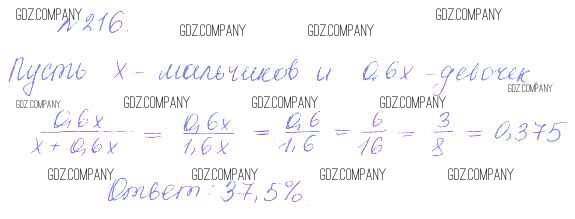 GDZ.COMPANY GDZ.COMPANY
№216. GDZ.COMPANY GDZ.COMPANY
Пусть x - мальчиков и 0,6x - девочек
GDZ.COMPANY
GDZ.COMPANY GDZ.COMPANY GDZ.COMPANY GDZ.COMPANY
0,6x / (x + 0,6x) = 0,6x / 1,6x = 0,6 / 1,6 = 6 / 16 = 3 / 8 = 0,375
GDZ.COMPANY GDZ.COMPANY GDZ.COMPANY GDZ.COMPANY
Ответ: 37,5%
GDZ.COMPANY GDZ.COMPANY GDZ.COMPANY